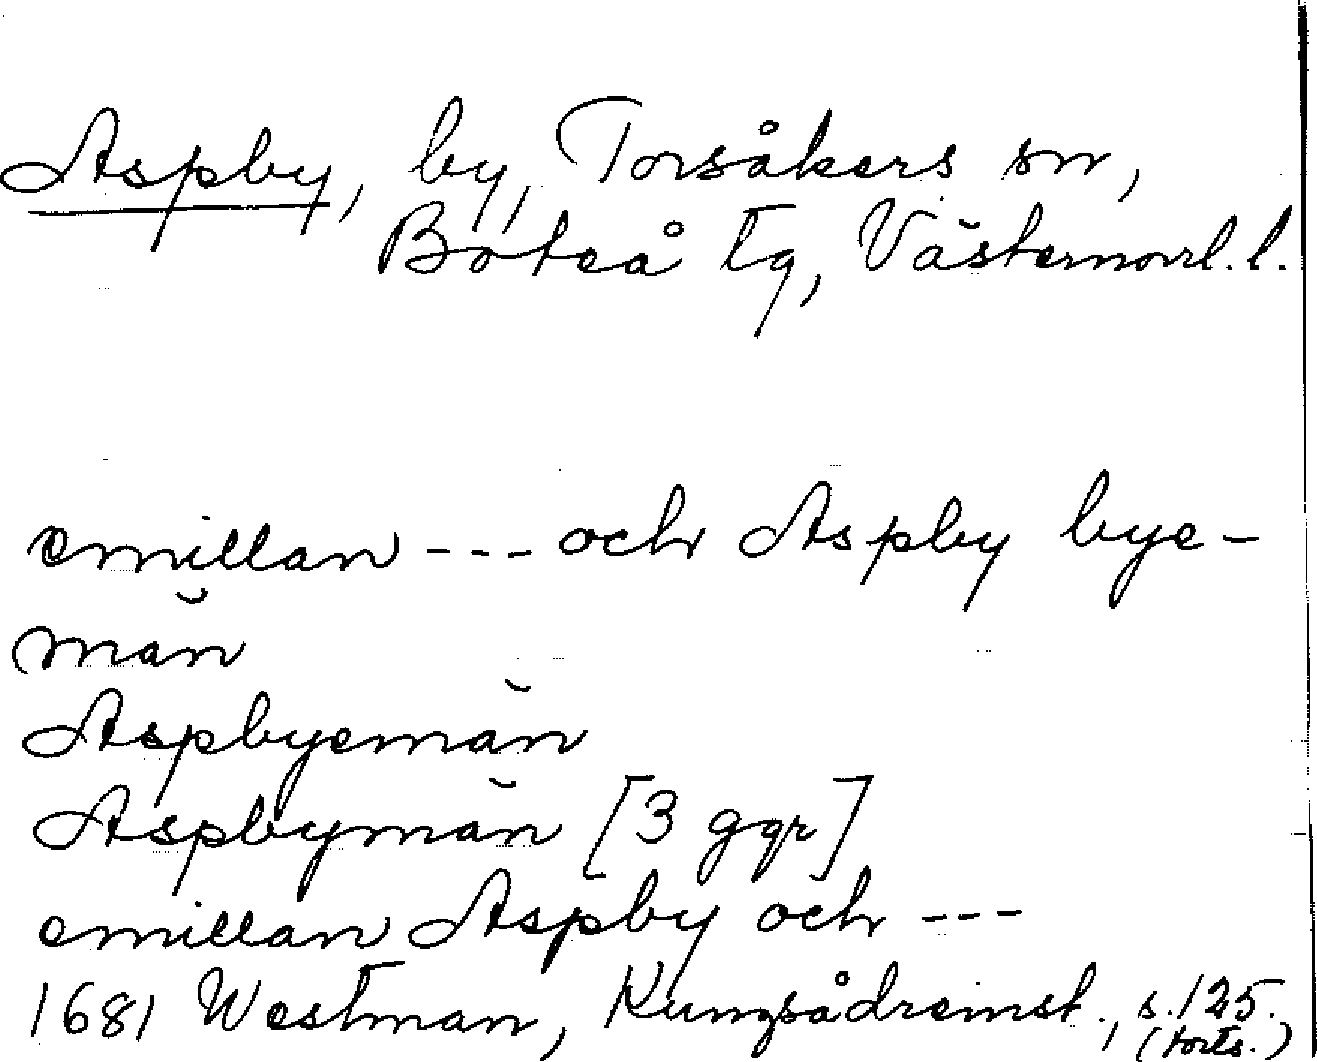 Aspby, by, Torsåkers sn,
Boteå tg, Västernorrl. l.
emillan --- och Aspby bye-
män
Aspbyemän
Aspbymän [3 ggr]
emillan Aspby och ---
1681 Westman, Kungsådreinst., s. 125.
(forts.)